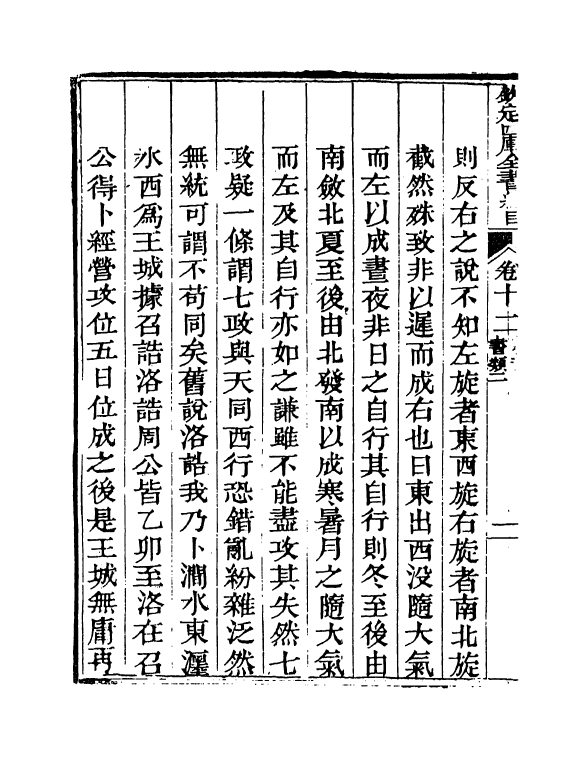 欽定四庫全書總目
卷十二
書類二
二
則反右之說不知左旋者東西旋右旋者南北旋
截然殊致非以遲而成右也日東出西没隨大氣
而左以成晝夜非日之自行其自行則冬至後由
南斂北夏至後由北發南以成寒暑月之隨大氣
而左及其自行亦如之謙雖不能盡攻其失然七
政疑一條謂七政與天同西行恐錯亂紛雜泛然
無統可謂不苟同矣舊說洛誥我乃卜澗水東瀍
水西爲王城據召誥洛誥周公皆乙卯至洛在召
公得卜經營攻位五日位成之後是王城無庸再